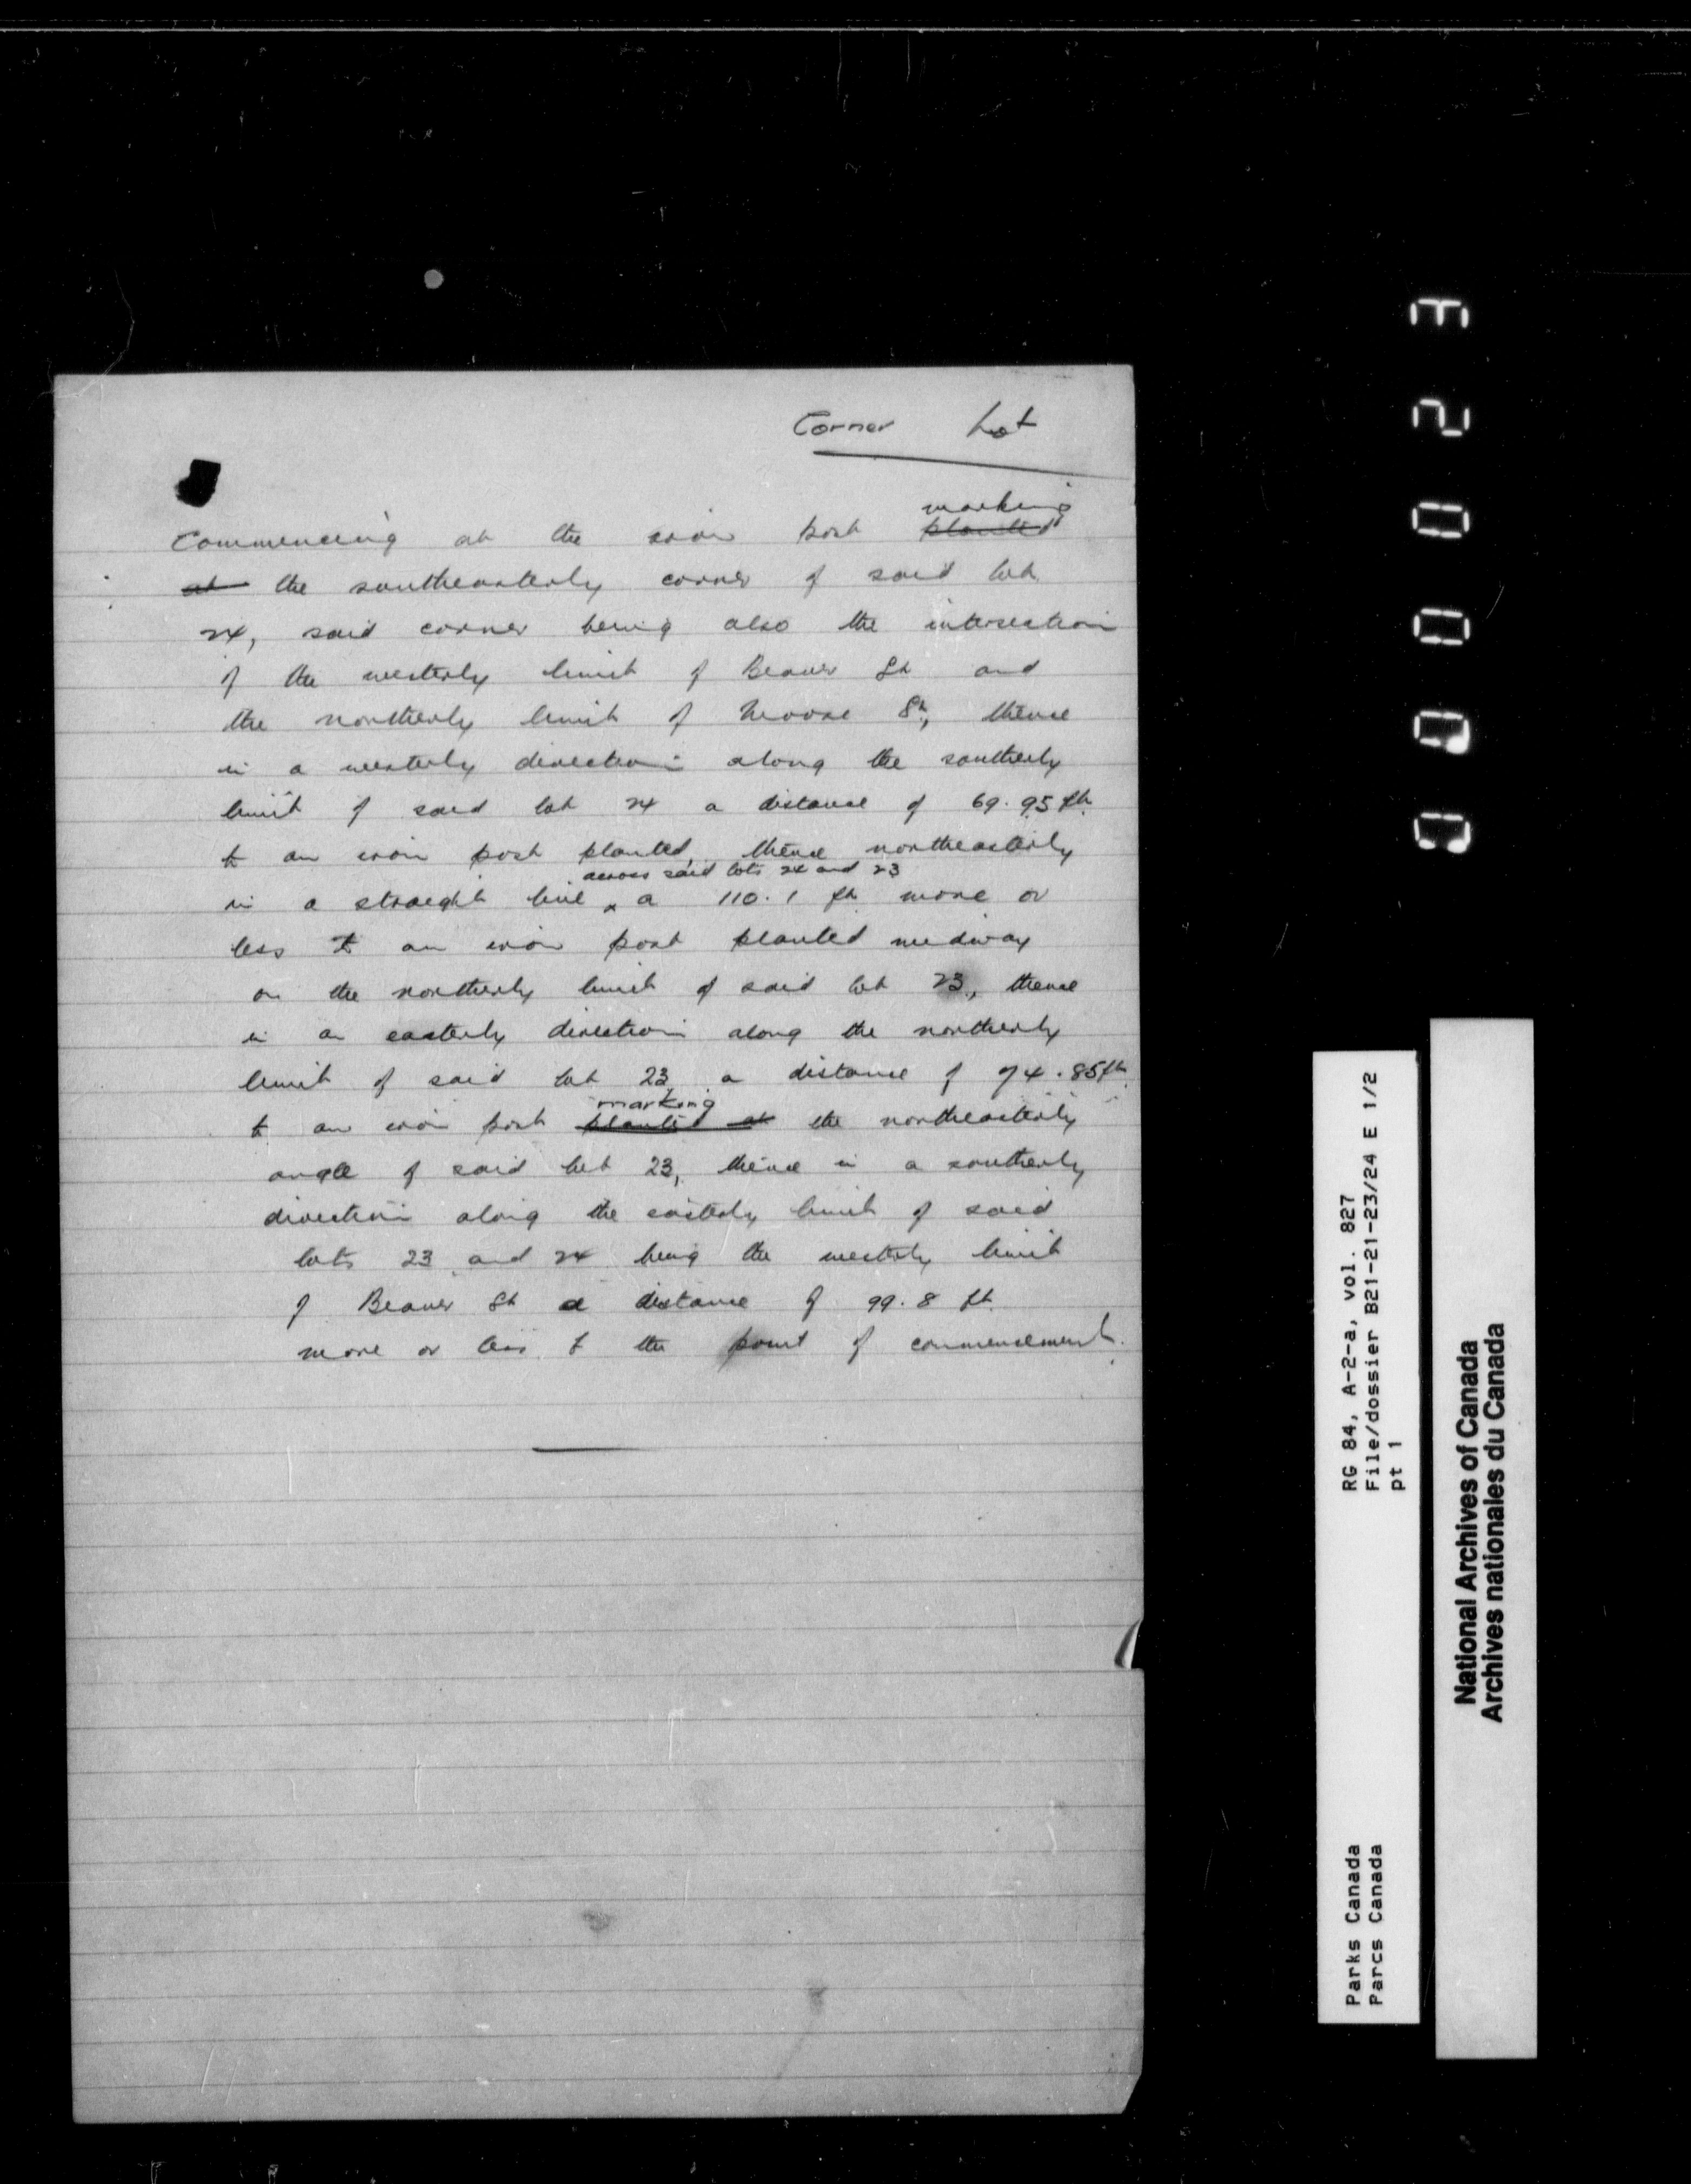 Corner Lot
marking
Commencing at the iron post planted
at the southeasterly corner of said lot
24, said corner being also the intersection
of the westerly limit of Beaver St and
the northerly limit of Moose St, thence
in a westerly direction along the southerly
limit of said lot 24 a distance of 69.95 ft.
to an iron post planted, thence northeasterly
across said lots 24 and 23
in a straight line ^ a 110.1 ft more or
less to an iron post planted midway
on the northerly limit of said lot 23, thence
in an easterly direction along the northerly
limit of said lot 23 a distance of 74.85 ft.
marking
to an iron post planted at the northeasterly
angle of said lot 23, thence in a southerly
direction along the easterly limit of said
lots 23 and 24 being the westerly limit
of Beaver St a distance of 99.8 ft.
more or less to the point of commencement.
00023
RG 84, A-2-a, vol. 827
File/dossier B21-21-23/24 E 1/2
pt 1
Parks Canada
Parcs Canada
National Archives of Canada
Archives nationales du Canada